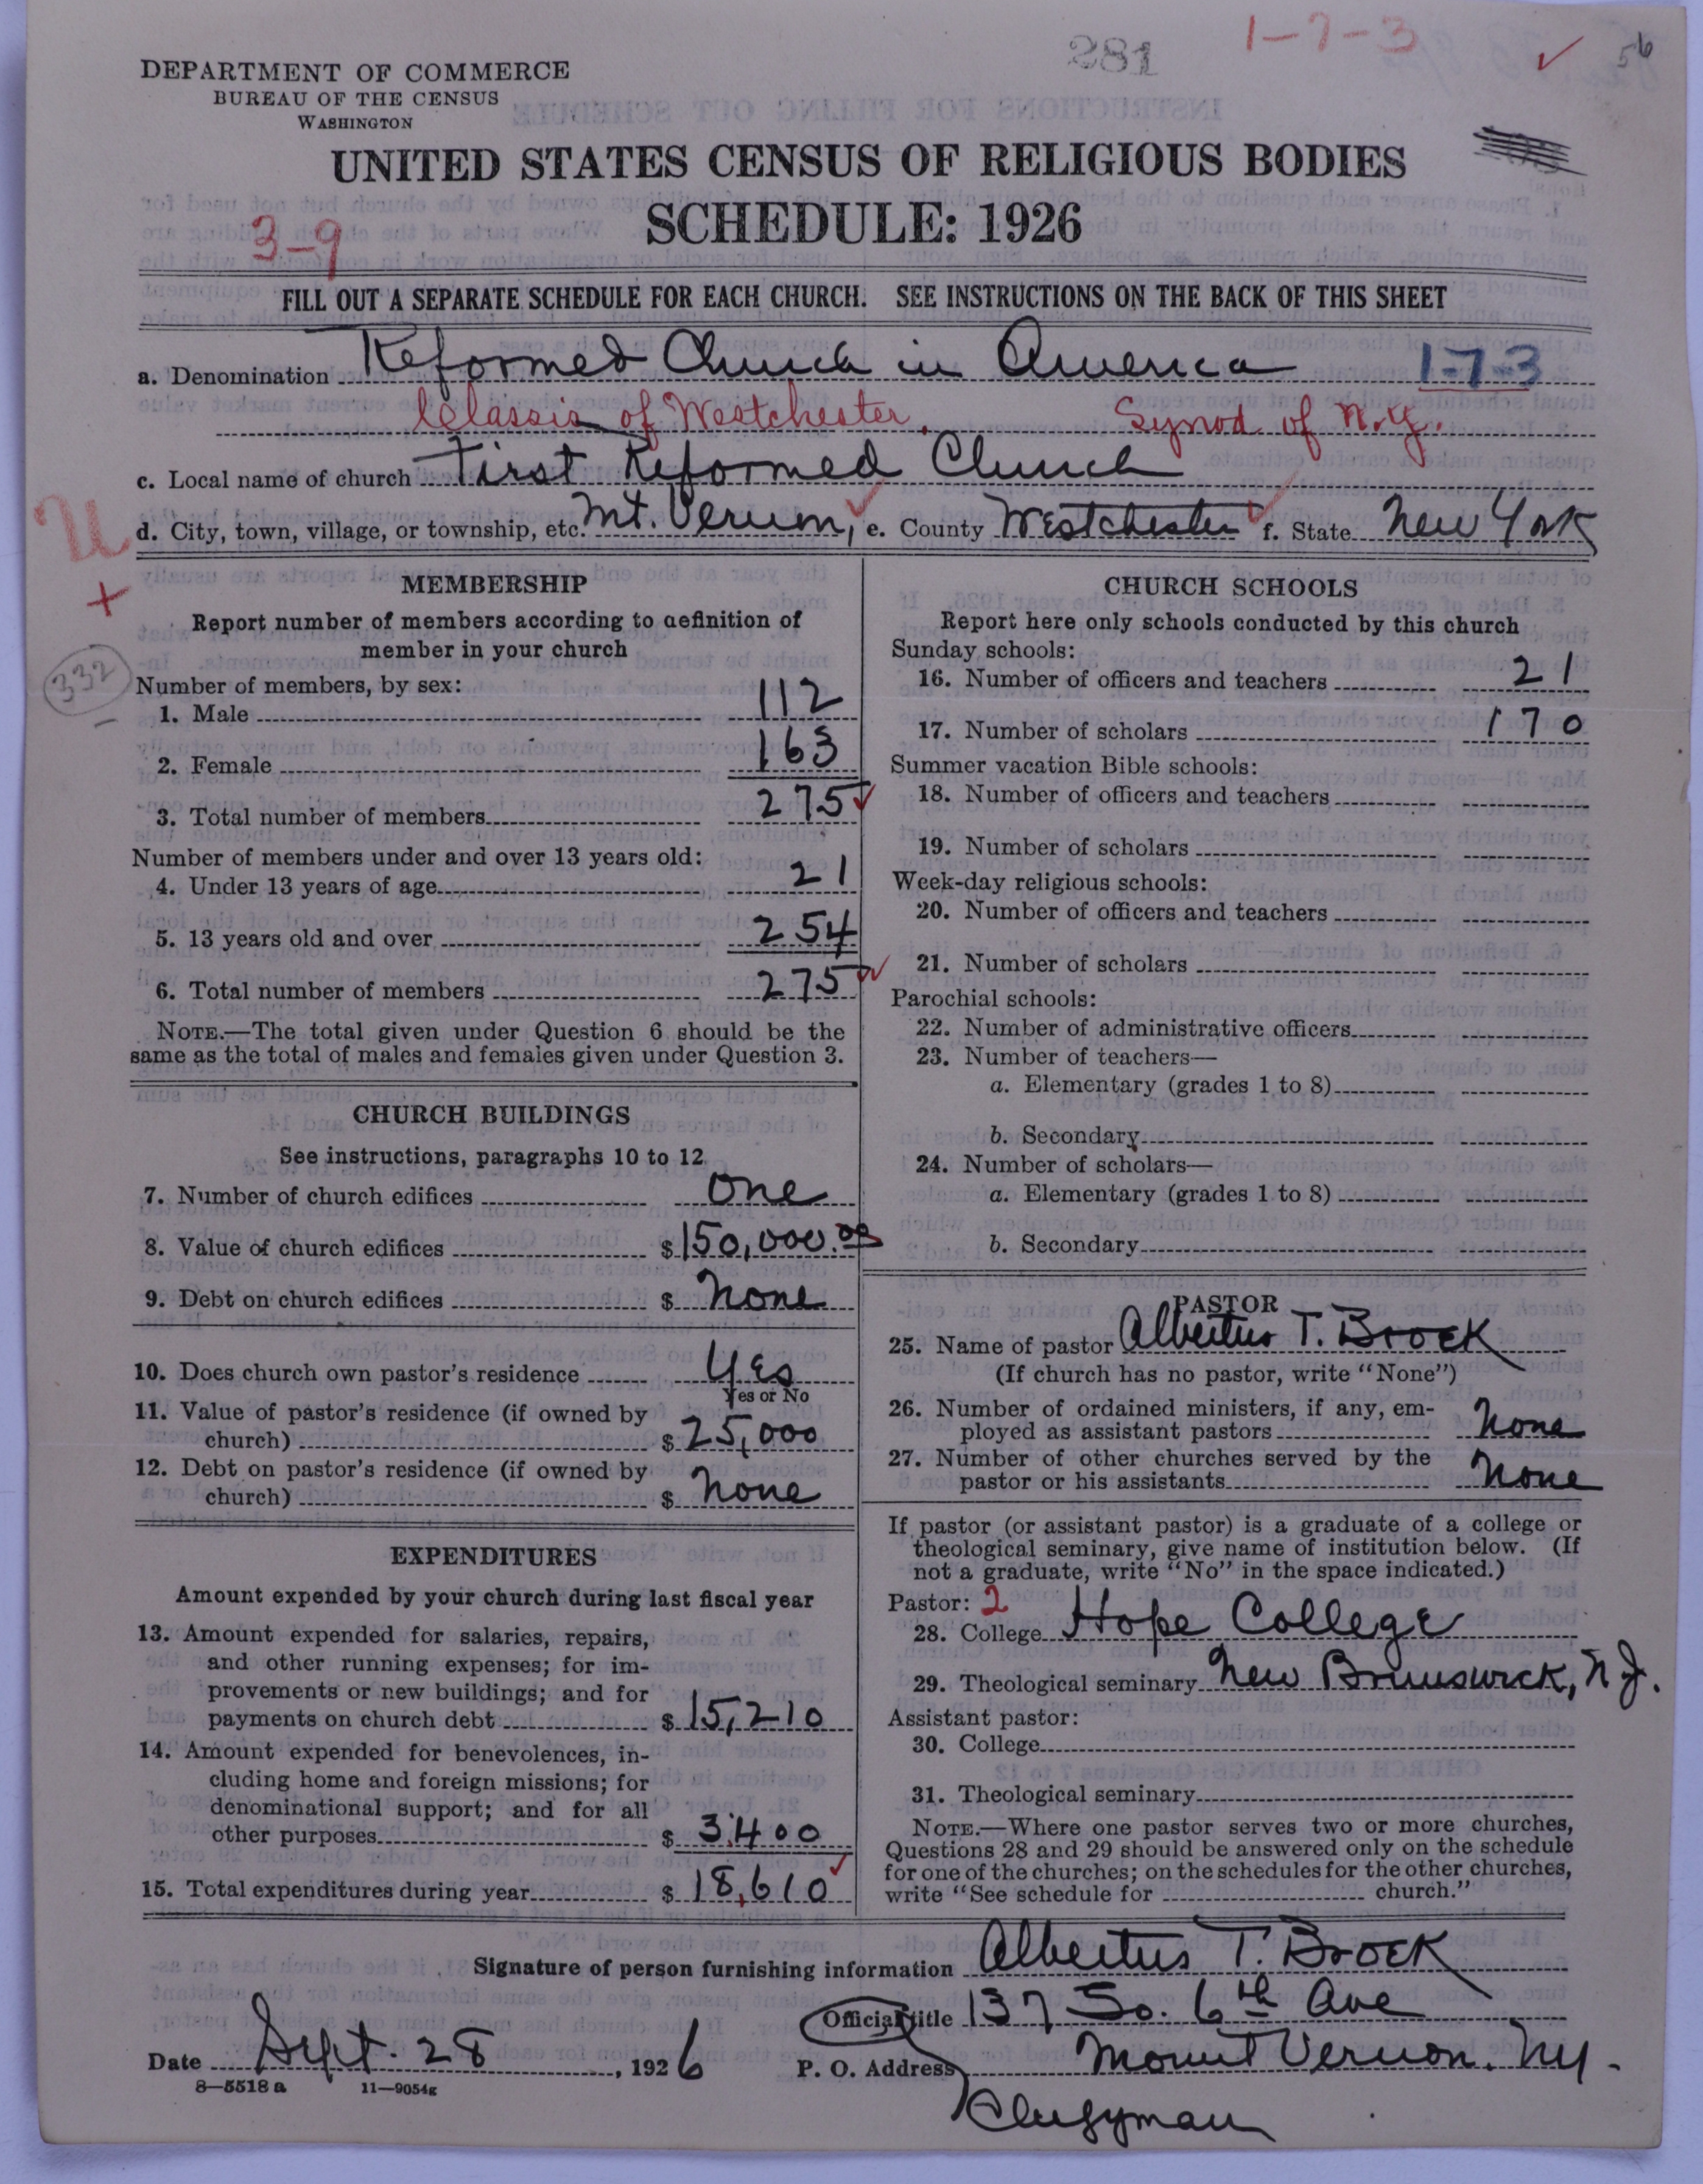 281
1-7-3
56
DEPARTMENT OF COMMERCE
BUREAU OF THE CENSUS
WASHINGTON
UNITED STATES CENSUS OF RELIGIOUS BODIES
SCHEDULE: 1926
3-9
FILL OUT A SEPARATE SCHEDULE FOR EACH CHURCH. SEE INSTRUCTIONS ON THE BACK OF THIS SHEET
a. Denomination Reformed Church in America 1-7-3
Classis of Westchester. Synod of N.Y.
c. Local name of church First Reformed Church
d. City, town, village, or township, etc. Mt. Vernon, e. County Westchester f. State New York
U
+
332
MEMBERSHIP
Report number of members according to definition of
member in your church
Number of members, by sex:
1. Male 112
2. Female 163
3. Total number of members 275
Number of members under and over 13 years old:
4. Under 13 years of age 21
5. 13 years old and over 254
6. Total number of members 275
NOTE.—The total given under Question 6 should be the
same as the total of males and females given under Question 3.
CHURCH BUILDINGS
See instructions, paragraphs 10 to 12
7. Number of church edifices One
8. Value of church edifices $ 150,000.00
9. Debt on church edifices $ None
10. Does church own pastor's residence Yes
Yes or No
11. Value of pastor's residence (if owned by
church) $ 25,000
12. Debt on pastor's residence (if owned by
church) $ None
EXPENDITURES
Amount expended by your church during last fiscal year
13. Amount expended for salaries, repairs,
and other running expenses; for im-
provements or new buildings; and for
payments on church debt $ 15,210
14. Amount expended for benevolences, in-
cluding home and foreign missions; for
denominational support; and for all
other purposes $ 3,400
15. Total expenditures during year $ 18,610
CHURCH SCHOOLS
Report here only schools conducted by this church
Sunday schools:
16. Number of officers and teachers 21
17. Number of scholars 170
Summer vacation Bible schools:
18. Number of officers and teachers
19. Number of scholars
Week-day religious schools:
20. Number of officers and teachers
21. Number of scholars
Parochial schools:
22. Number of administrative officers
23. Number of teachers—
a. Elementary (grades 1 to 8)
b. Secondary
24. Number of scholars—
a. Elementary (grades 1 to 8)
b. Secondary
PASTOR
25. Name of pastor Albertus T. Broek
(If church has no pastor, write "None")
26. Number of ordained ministers, if any, em-
ployed as assistant pastors None
27. Number of other churches served by the
pastor or his assistants None
If pastor (or assistant pastor) is a graduate of a college or
theological seminary, give name of institution below. (If
not a graduate, write "No" in the space indicated.)
Pastor: 2
28. College Hope College
29. Theological seminary New Brunswick, N.J.
Assistant pastor:
30. College
31. Theological seminary
NOTE.—Where one pastor serves two or more churches,
Questions 28 and 29 should be answered only on the schedule
for one of the churches; on the schedules for the other churches,
write "See schedule for church."
Signature of person furnishing information Albertus T. Broek
Official title 137 So. 6th Ave
Date Sept. 28, 1926 P. O. Address Mount Vernon. N.Y.
8—5518 a 11—9054g
Clergyman